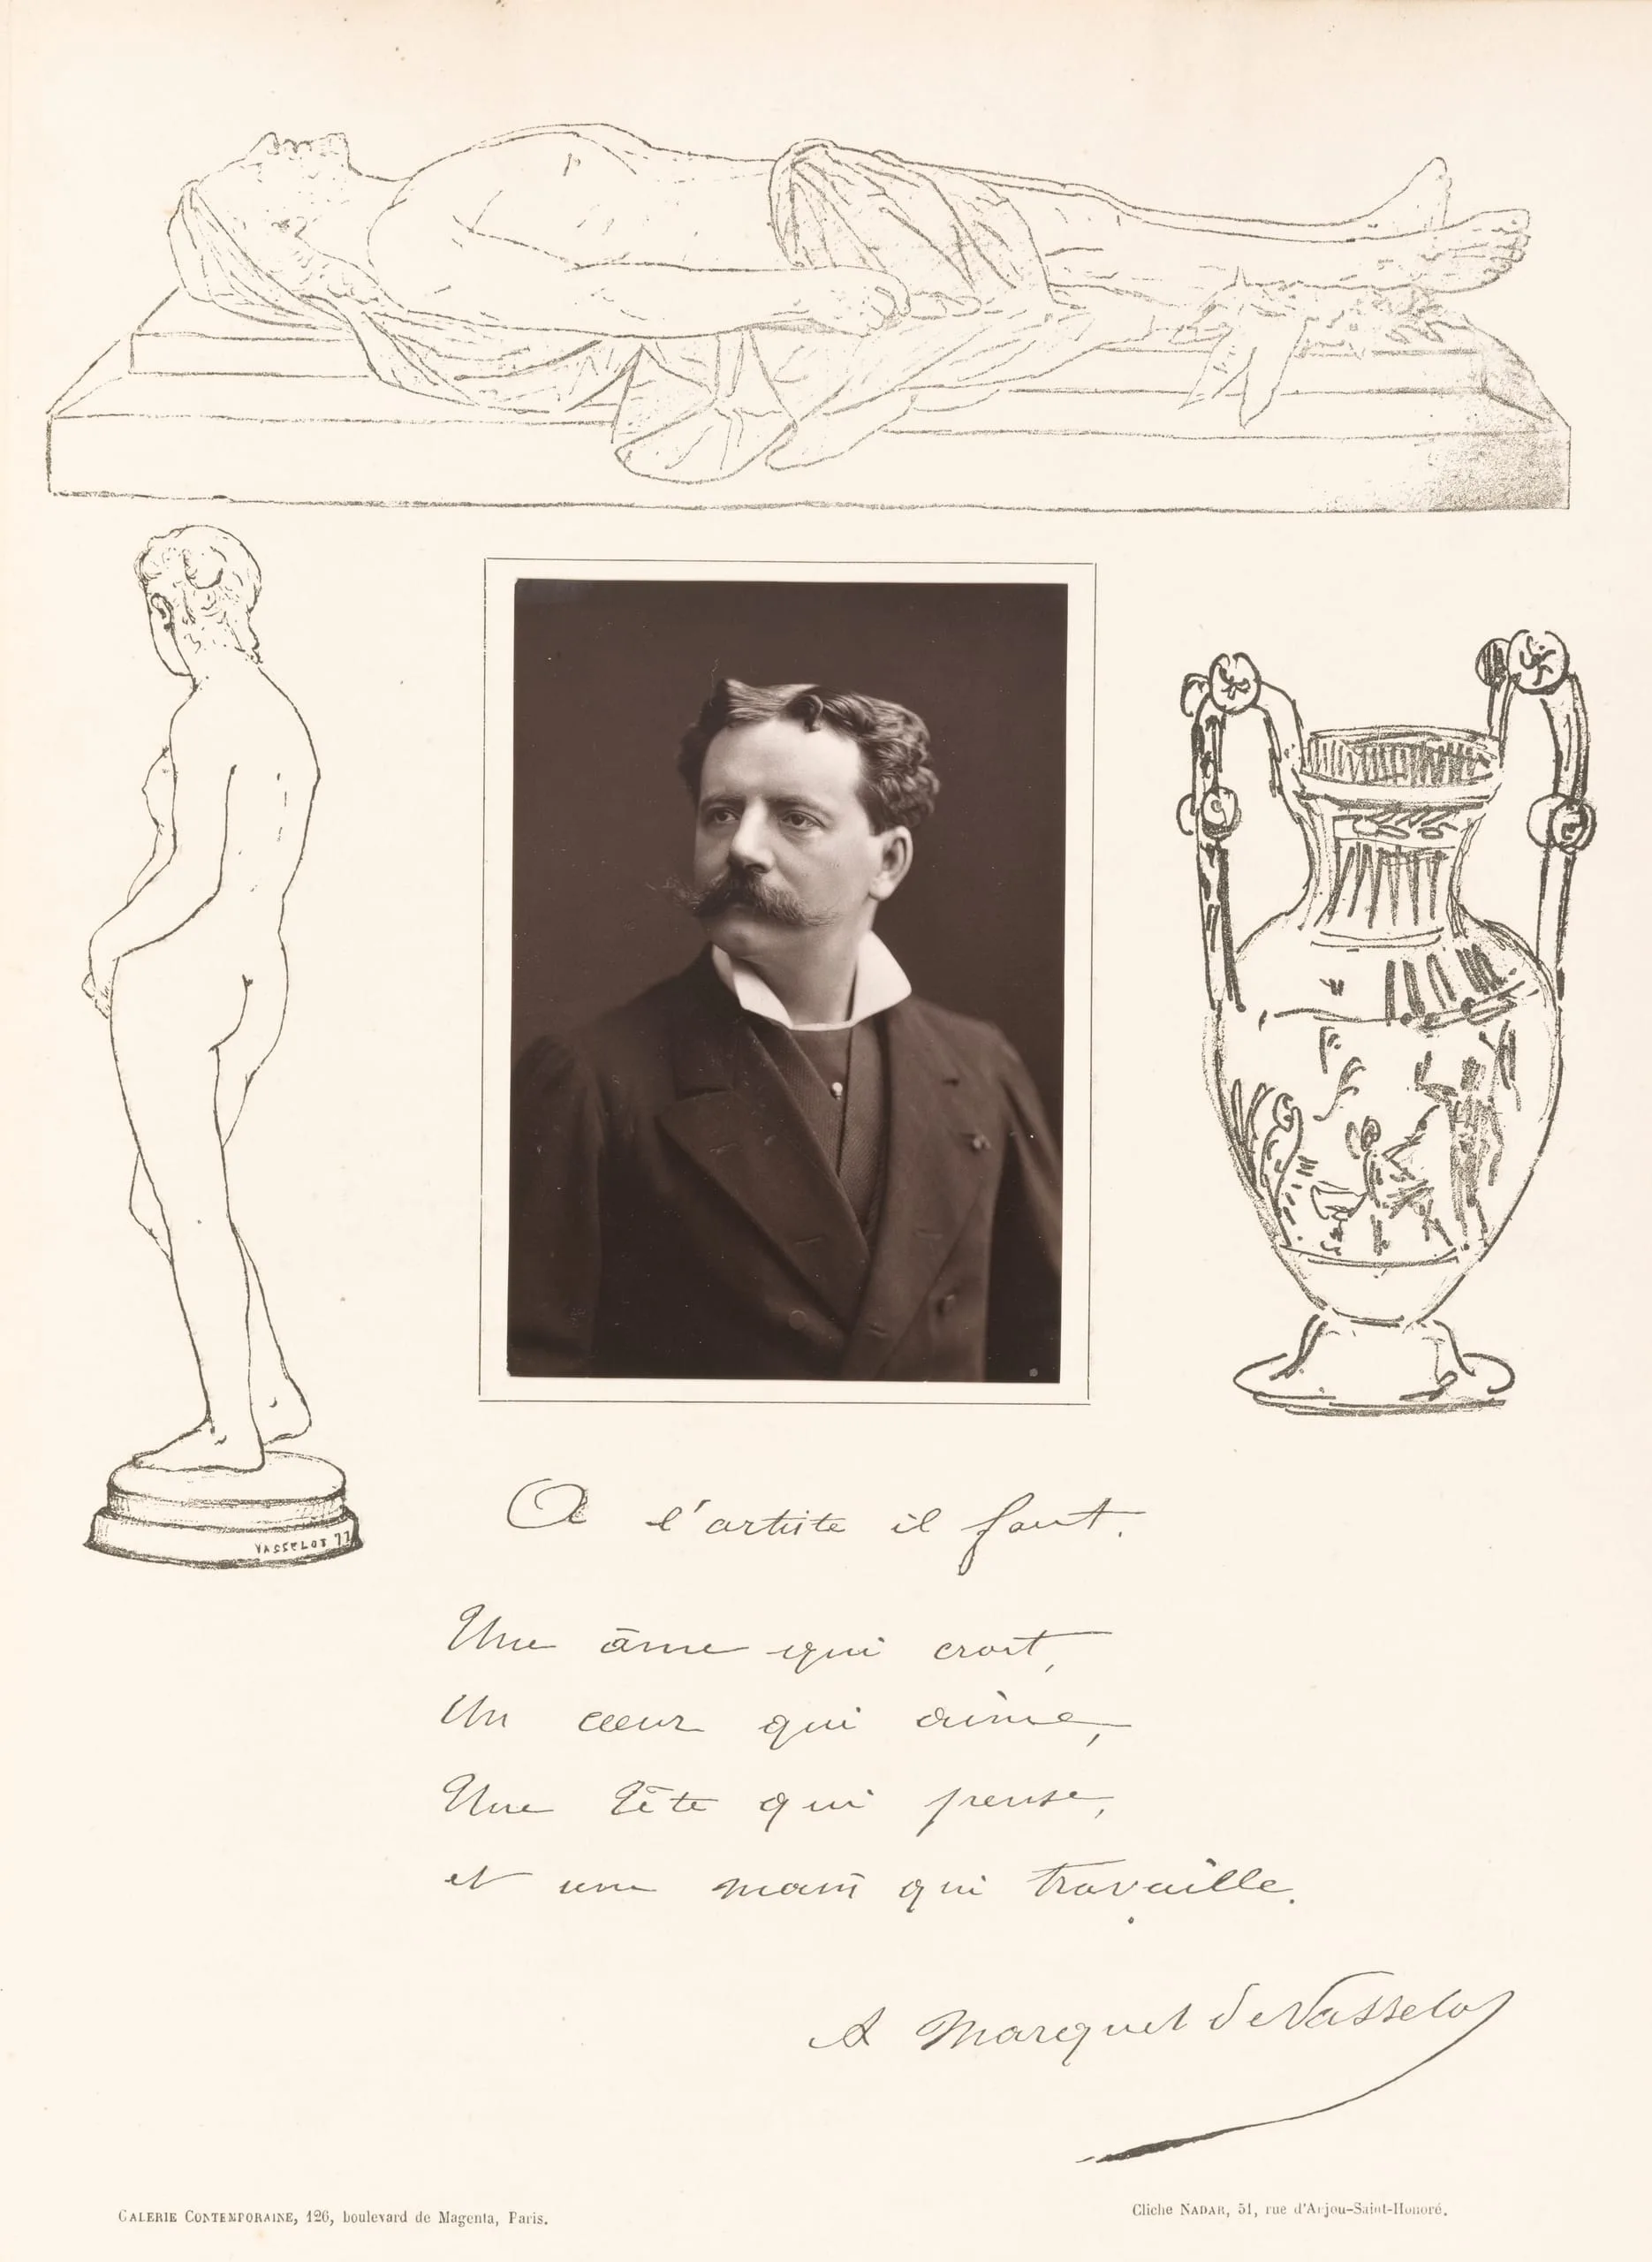 VASSELOT 77
A l'artiste il faut.
Une âme qui croit,
Un cœur qui aime,
Une tête qui pense,
et une main qui travaille.
A Marquet de Vasselot
GALERIE CONTEMPORAINE, 126, boulevard de Magenta, Paris.
Cliche NADAR, 51, rue d'Anjou-Saint-Honoré.